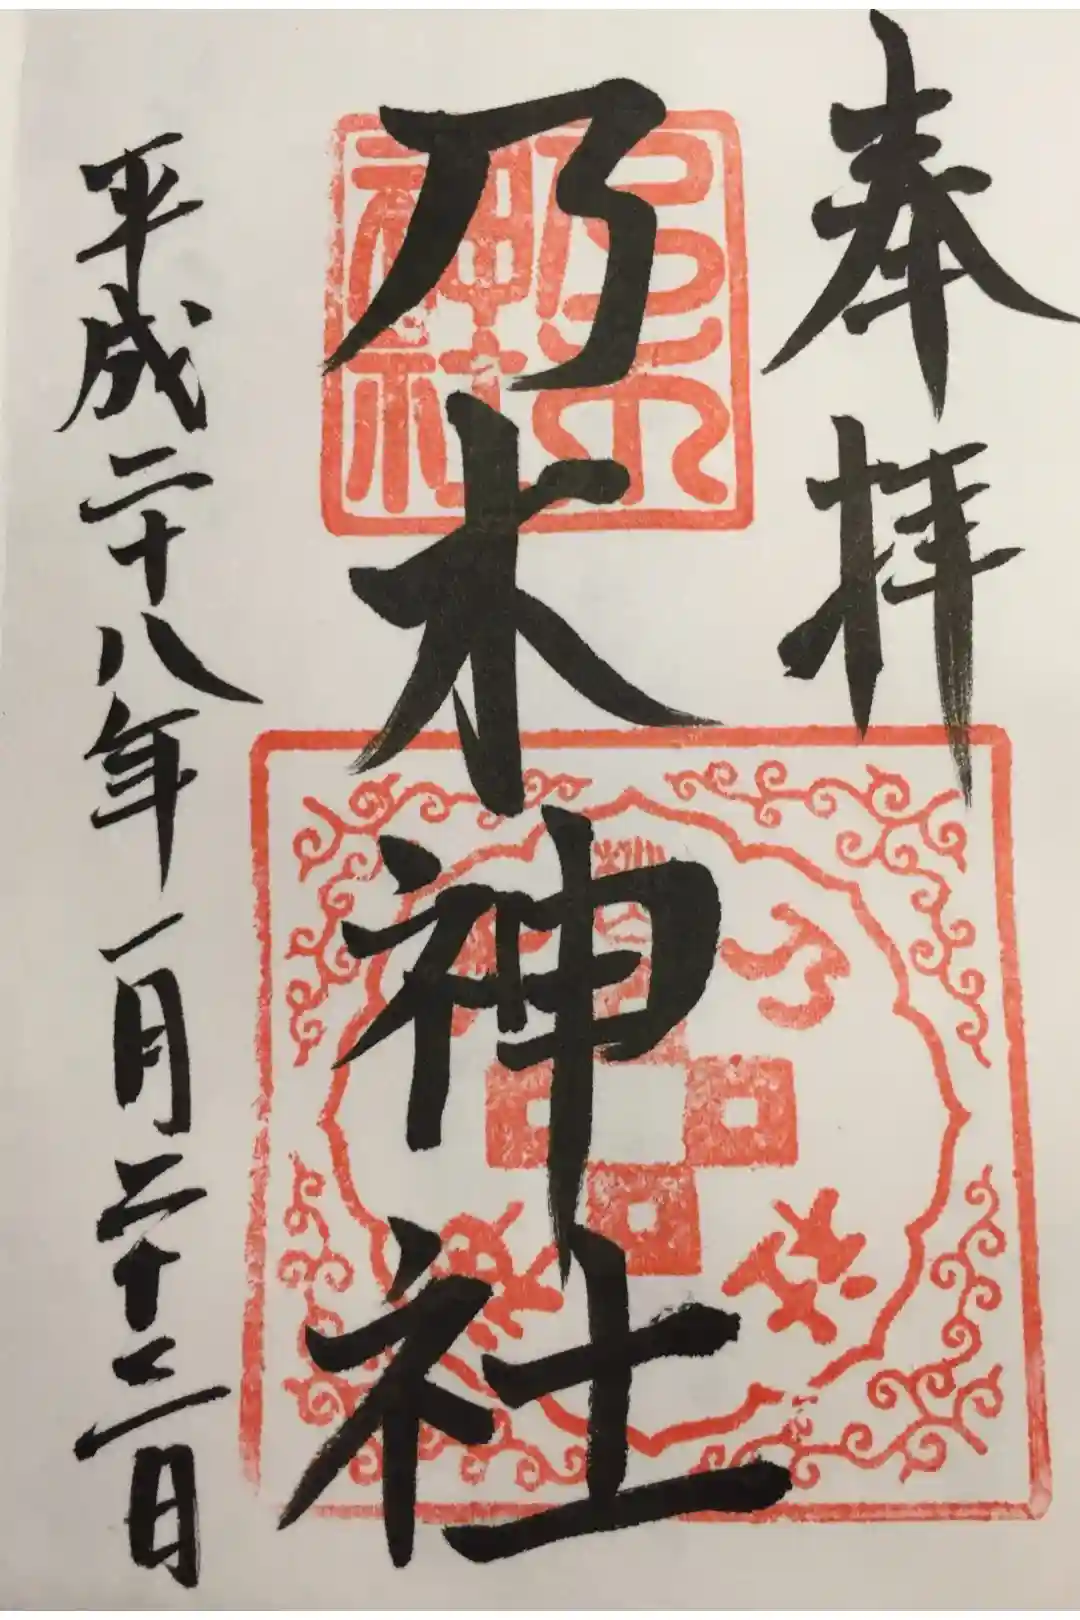 奉拝
乃木神社
乃木
神社
平成二十八年一月二十三日